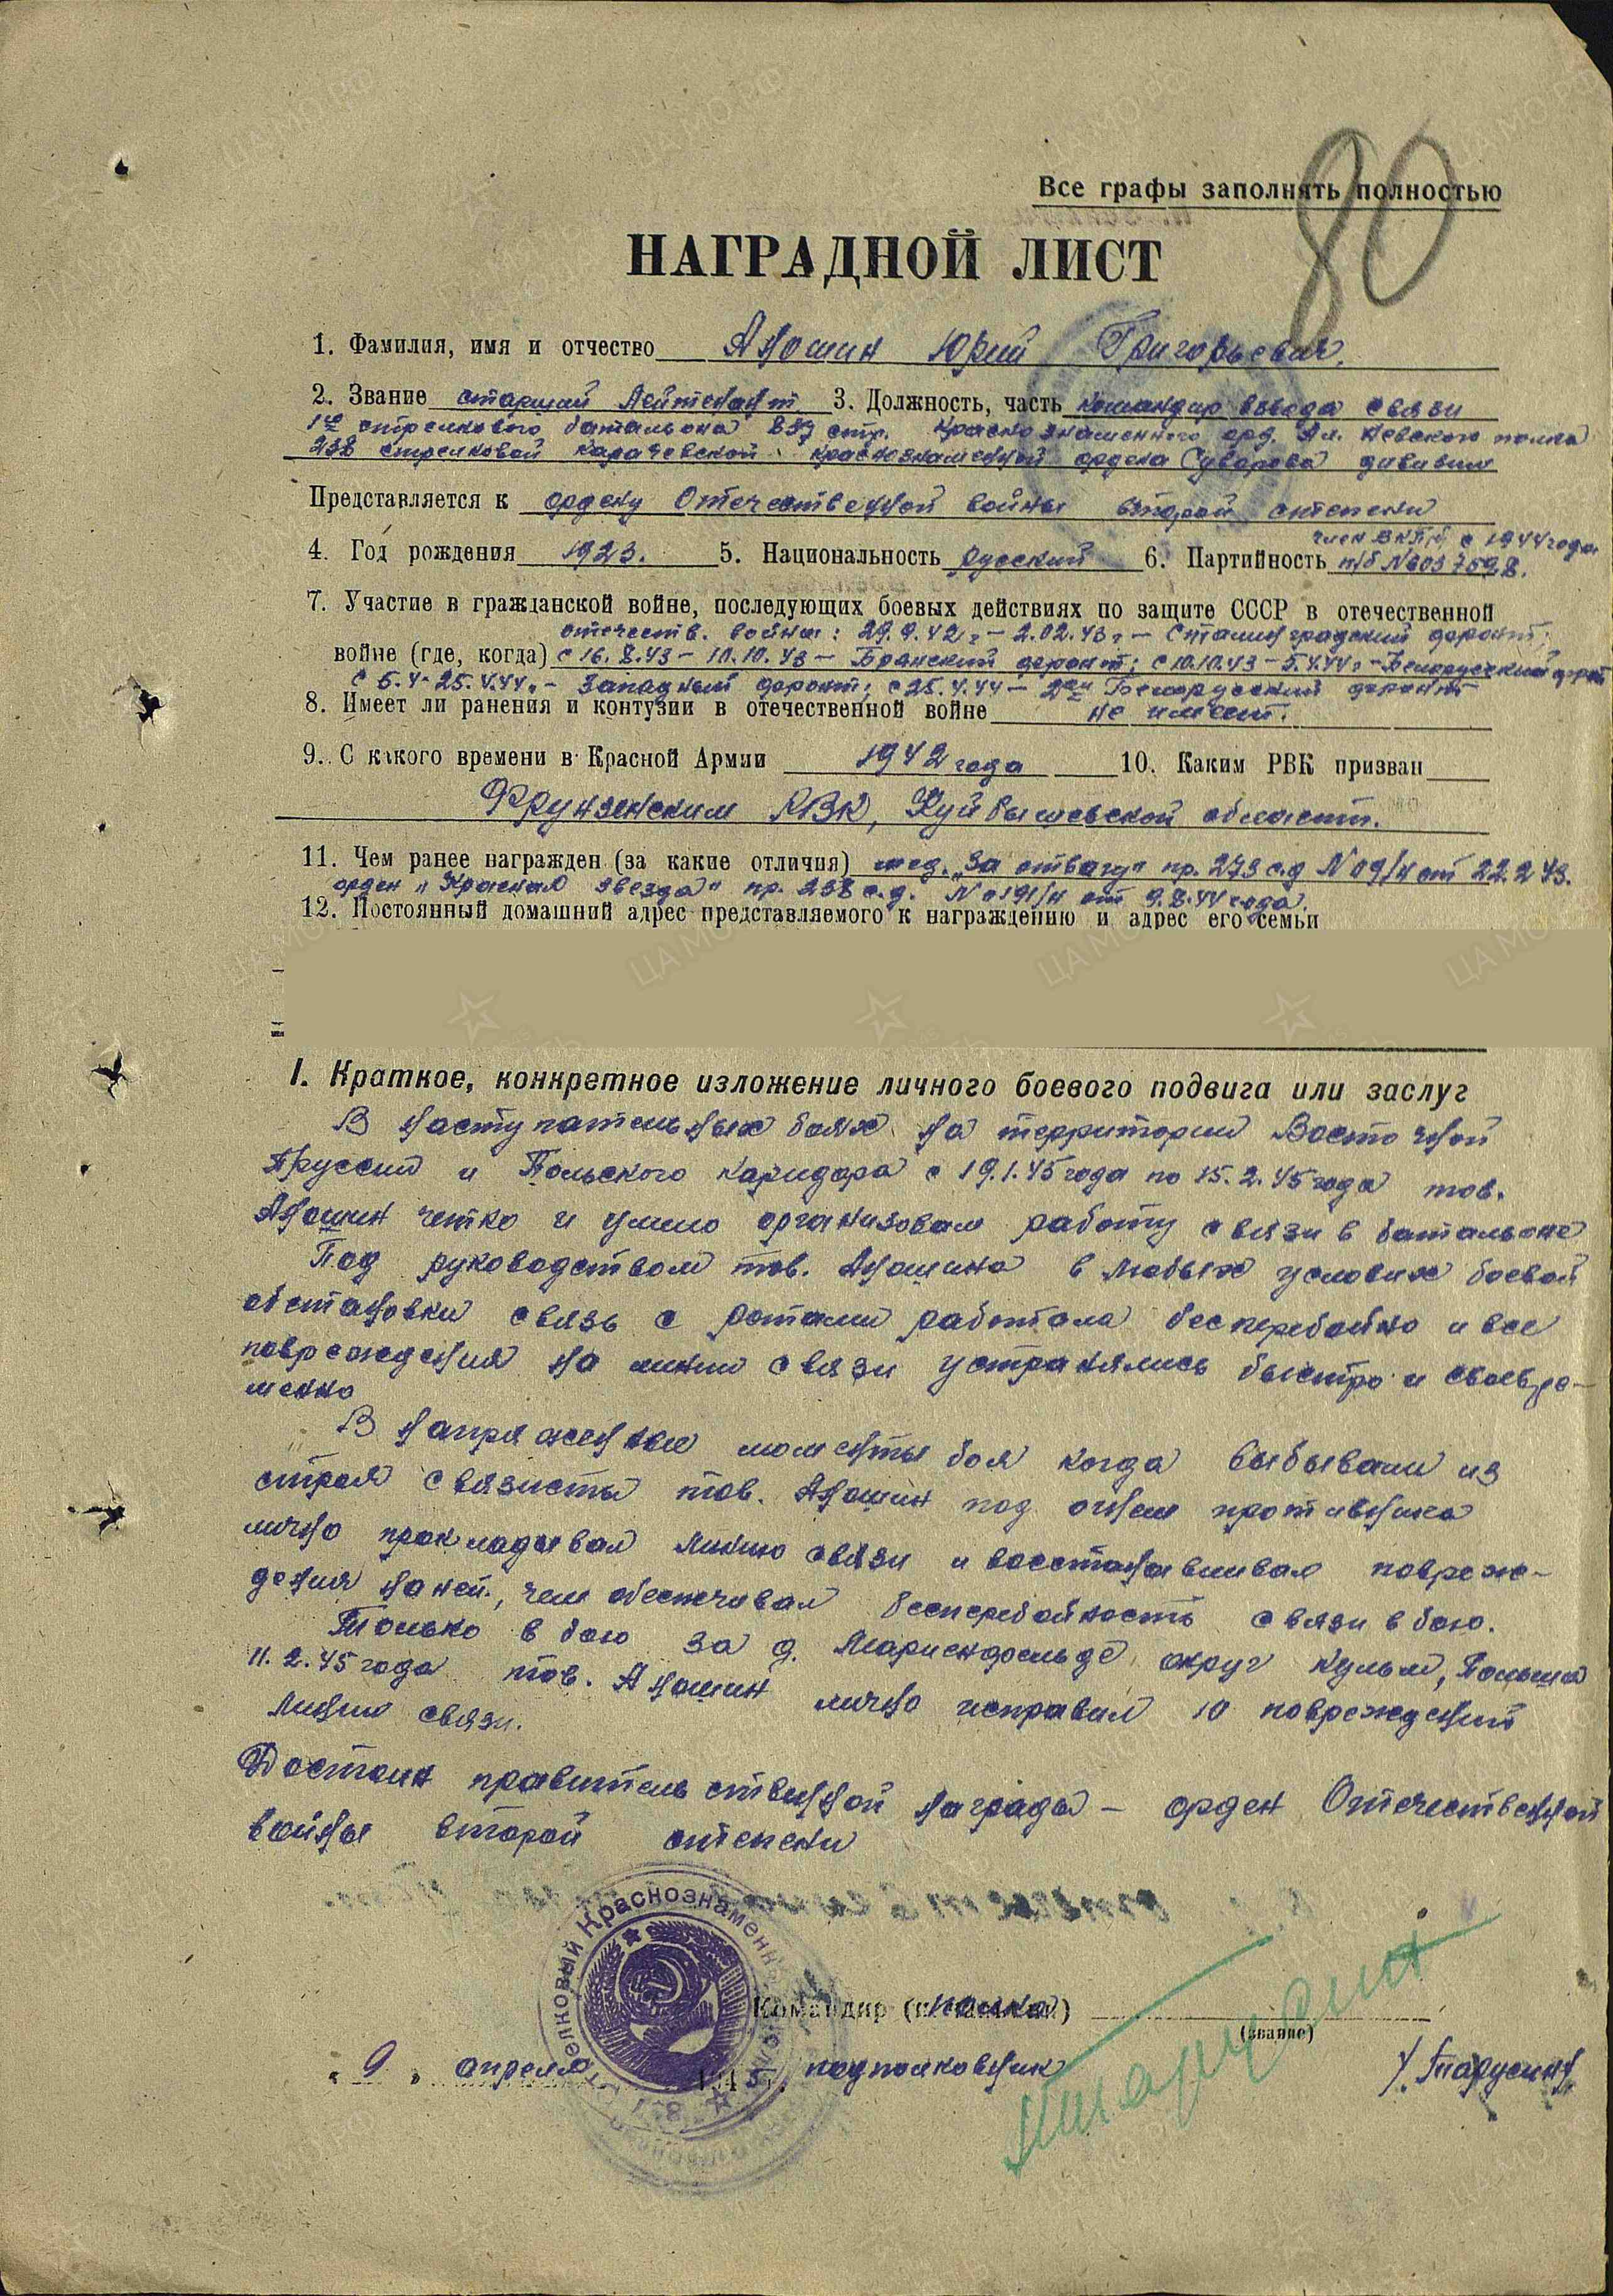 80
Все графы заполнять полностью
НАГРАДНОЙ ЛИСТ
1. Фамилия, имя и отчество Аношин Юрий Григорьевич.
2. Звание старший лейтенант 3. Должность, часть командир взвода связи
1го стрелкового батальона 837 стр. Краснознаменного орд. Ал. Невского полка
238 стрелковой Карачевской Краснознаменной ордена Суворова дивизии
Представляется к ордену Отечественной войны второй степени
член ВКП/б/ с 1944 года
4. Год рождения 1923. 5. Национальность русский 6. Партийность п/б №6037598.
7. Участие в гражданской войне, последующих боевых действиях по защите СССР в отечественной
отечеств. война: 29.9.42 г – 2.02.43 г – Сталинградский фронт;
войне (где, когда) с 16.8.43 – 10.10.43 – Брянский фронт; с 10.10.43 – 5.4.44 г – Белорусский фронт
с 5.4 - 25.4.44 г. – Западный фронт; с 25.4.44 – 2ой Белорусский фронт
8. Имеет ли ранения и контузии в отечественной войне не имеет.
9. С какого времени в Красной Армии 1942 года 10. Каким РВК призван
Фрунзенским РВК, Куйбышевской области.
11. Чем ранее награжден (за какие отличия) мед. „За отвагу" пр. 273 с.д N 09/н от 22.2.43.
орден „Красная звезда" пр. 238 с.д. N 0191/н от 9.8.44 года.
12. Постоянный домашний адрес представляемого к награждению и адрес его семьи
I. Краткое, конкретное изложение личного боевого подвига или заслуг
В наступательных боях на территории Восточной
Пруссии и Польского каридора с 19.1.45 года по 15.2.45 года тов.
Аношин четко и умело организовал работу связи в батальоне
Под руководством тов. Аношина в любых условиях боевой
обстановки связь с ротами работала бесперебойно и все
повреждения на линии связи устранялись быстро и своевре-
менно
В напряженные моменты боя когда выбывали из
строя связисты тов. Аношин под огнем противника
лично прокладывал линию связи и восстанавливал повреж-
дения на ней, чем обеспечивал бесперебойность связи в бою.
Только в бою за д. Мариенфельде округ Кульм, Польша
11.2.45 года тов. Аношин лично исправил 10 повреждений
линии связи.
Достоин правительственной награды – орден Отечественной
войны второй степени
Командир полка
(звание)
„9" апреля 1945 г. подполковник /. Тарусин
Стрелковый Краснознаменный
837